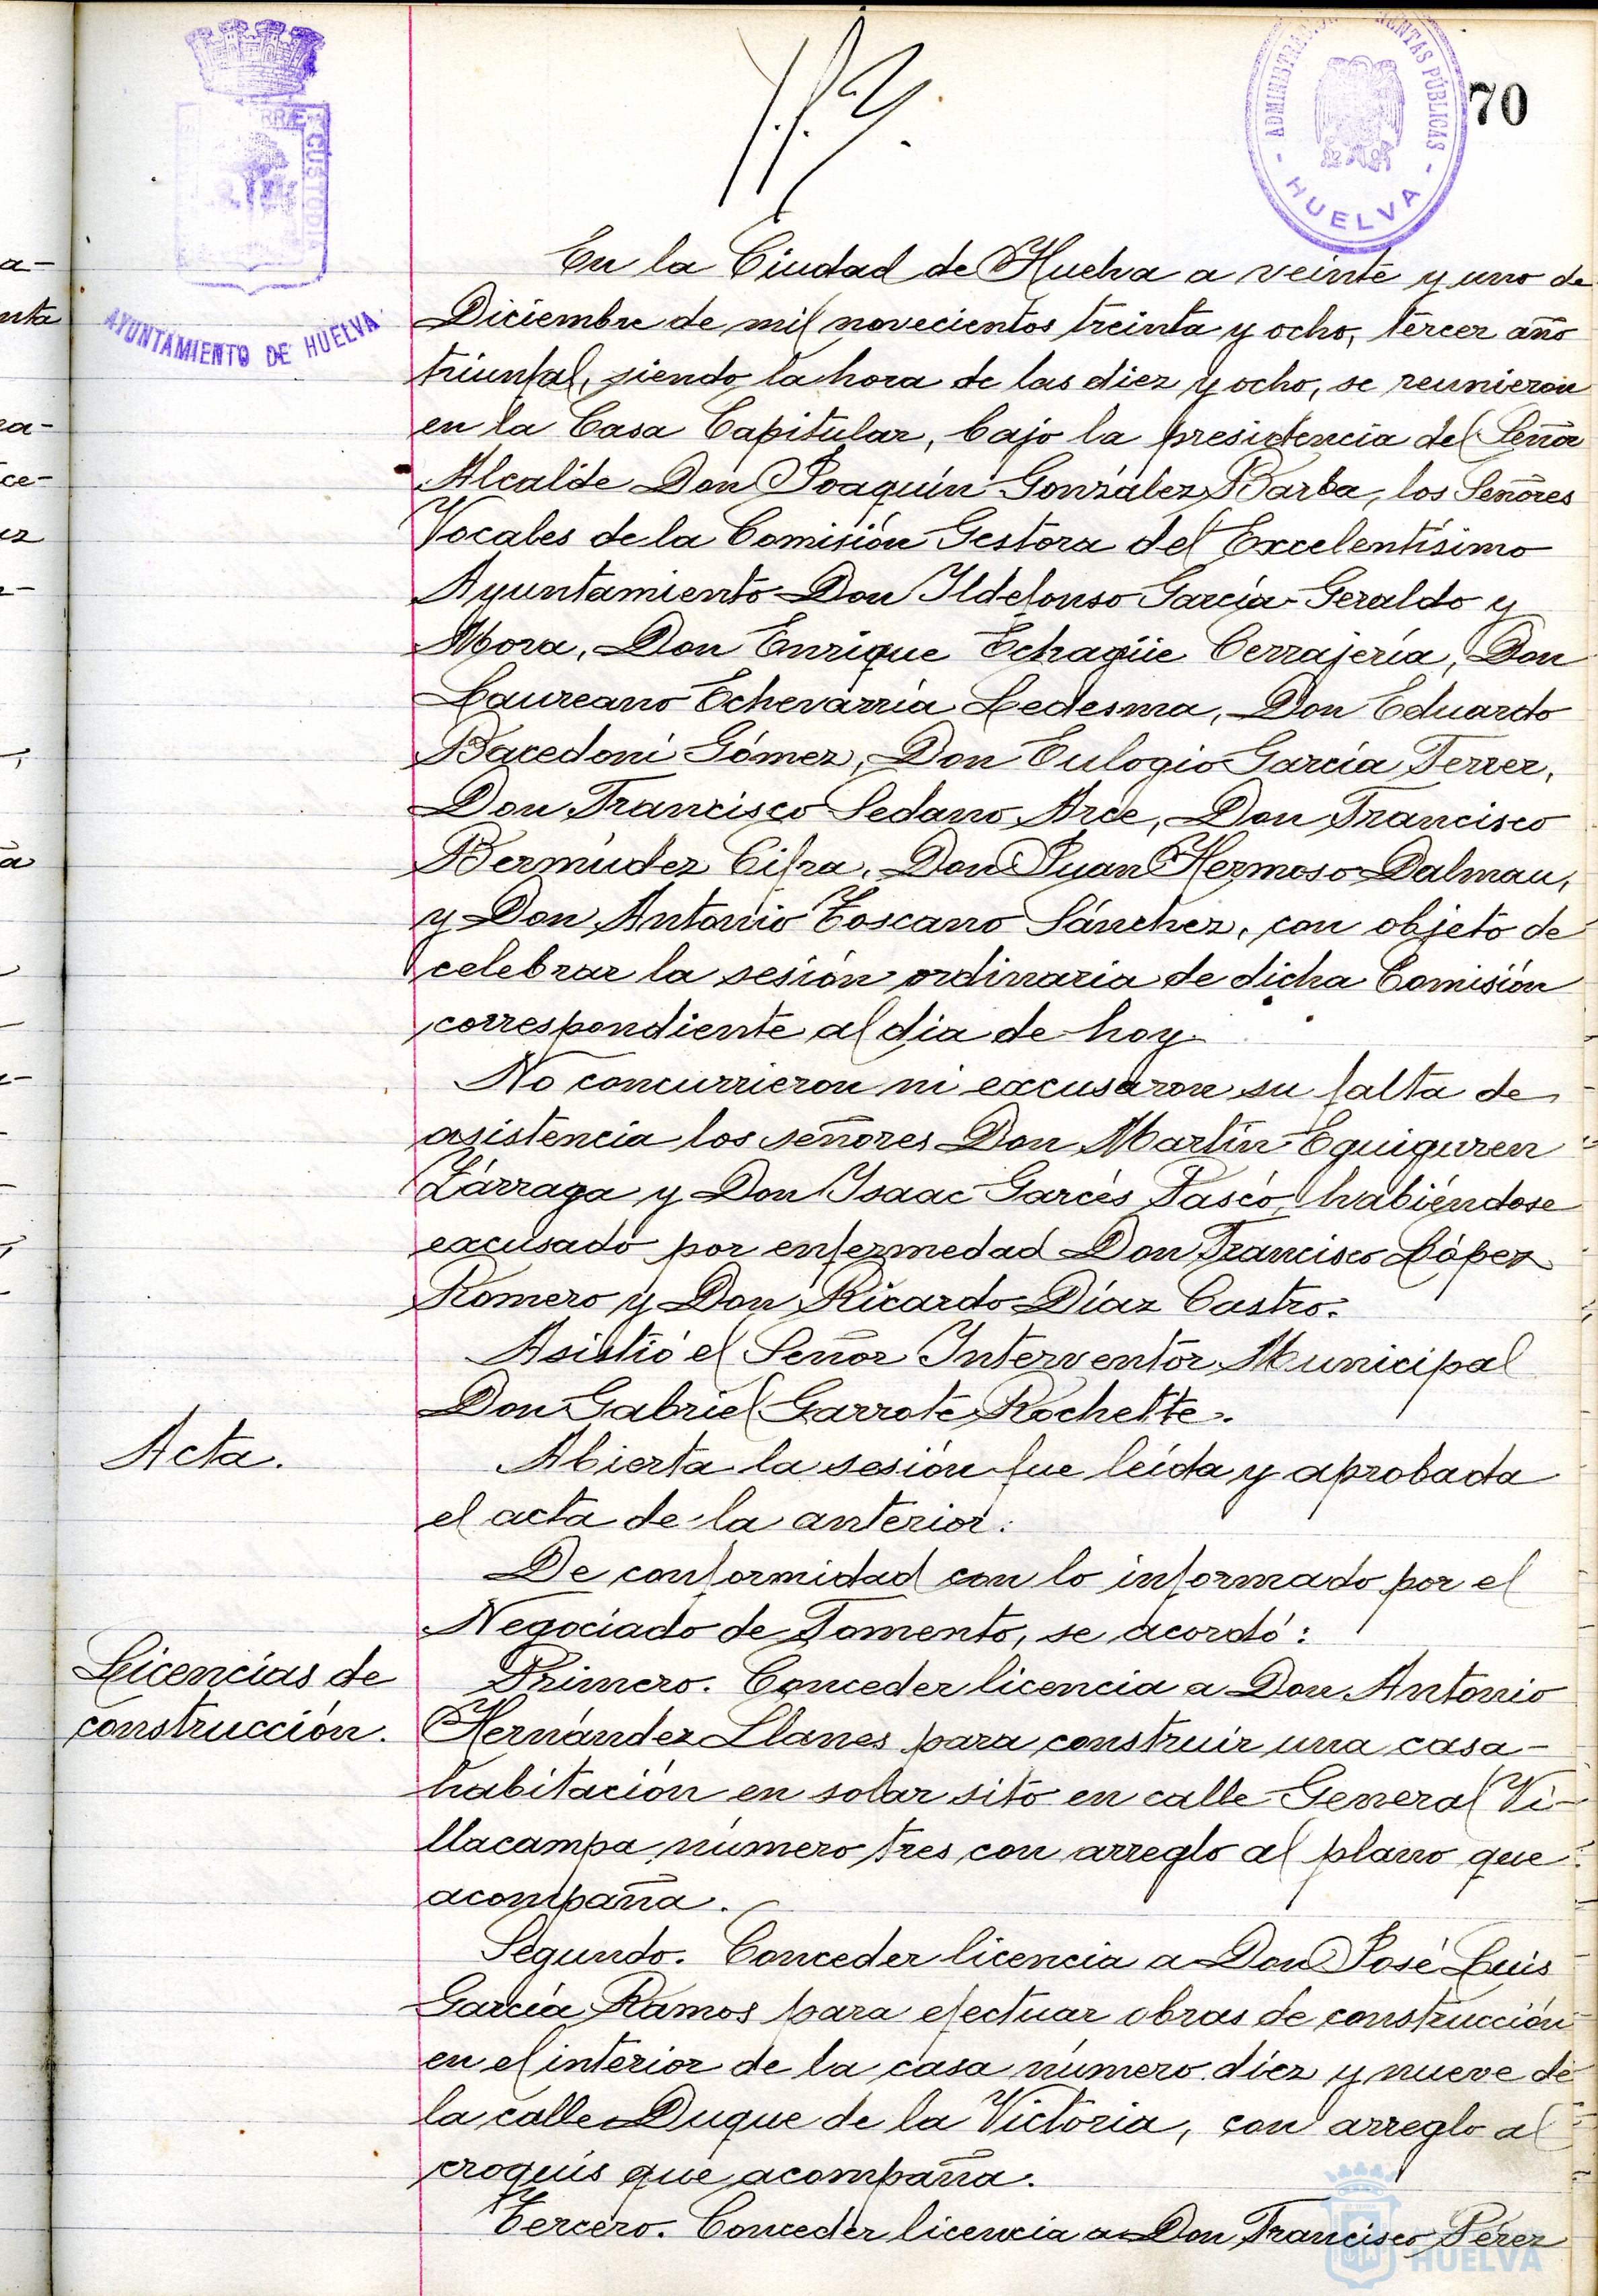 ADMINISTRACIÓN RENTAS PÚBLICAS
- HUELVA -
70
TERRÆ CUSTODIA
AYUNTAMIENTO DE HUELVA
En la Ciudad de Huelva a veinte y uno de
Diciembre de mil novecientos treinta y ocho, tercer año
triunfal, siendo la hora de las diez y ocho, se reunieron
en la Casa Capitular, bajo la presidencia del Señor
Alcalde Don Joaquín González Barba, los Señores
Vocales de la Comisión Gestora del Excelentísimo
Ayuntamiento Don Ildefonso García Geraldo y
Mora, Don Enrique Echagüe Cerrajería, Don
Laureano Echevarría Ledesma, Don Eduardo
Bacedoni Gómez, Don Eulogio García Ferrer,
Don Francisco Sedano Arce, Don Francisco
Bermúdez Cifra, Don Juan Hermoso Dalmau,
y Don Antonio Toscano Sánchez, con objeto de
celebrar la sesión ordinaria de dicha Comisión
correspondiente al día de hoy.
No concurrieron ni excusaron su falta de
asistencia los señores Don Martín Eguiguren
Zárraga y Don Isaac Garcés Pasco, habiéndose
excusado por enfermedad Don Francisco López
Romero y Don Ricardo Díaz Castro.
Asistió el Señor Interventor Municipal
Don Gabriel Garrote Rochette.
Acta.
Abierta la sesión fue leída y aprobada
el acta de la anterior.
De conformidad con lo informado por el
Negociado de Fomento, se acordó:
Licencias de
construcción.
Primero. Conceder licencia a Don Antonio
Hernández Llanes para construir una casa-
habitación en solar sito en calle General Vi-
llacampa número tres con arreglo al plano que
acompaña.
Segundo. Conceder licencia a Don José Luis
García Ramos para efectuar obras de construcción
en el interior de la casa número diez y nueve de
la calle Duque de la Victoria, con arreglo al
croquis que acompaña.
Tercero. Conceder licencia a Don Francisco Pérez
HUELVA